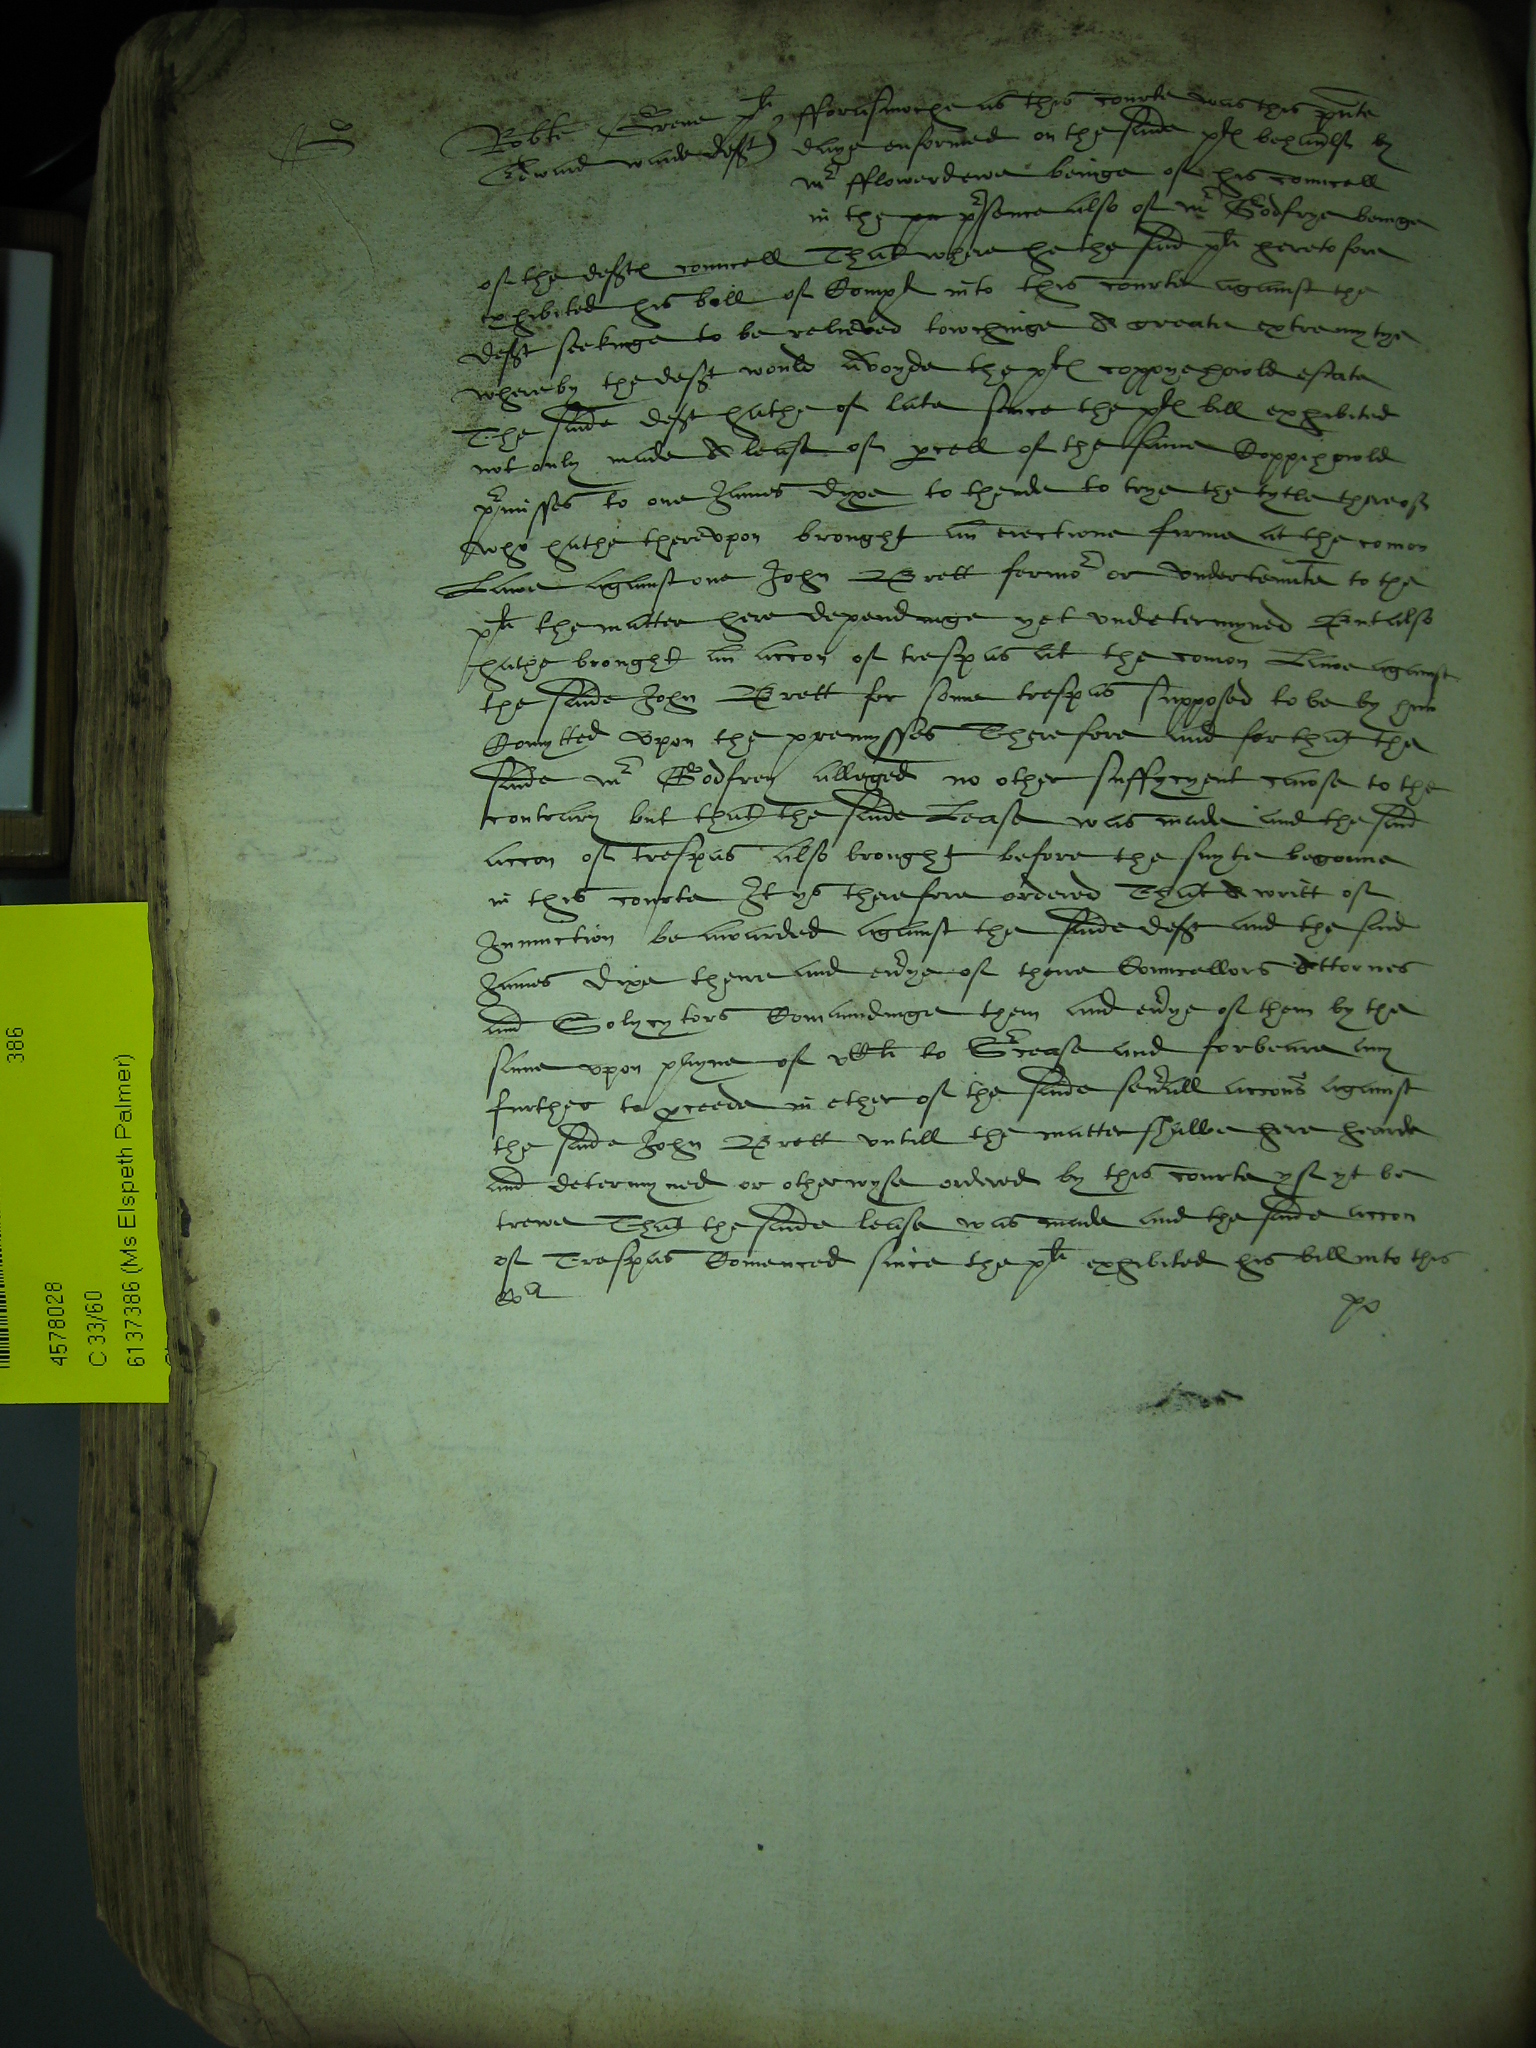 Robte Grene plt } fforasmoche as this courte was this pnte
Edward Wade deft } daye enformed on the saide plts behaulfe by
mr fflowerdewe beinge of his councell
in the pn presence also of mr Godfrye beinge
of the defts councell That where he the said plt heretofore
exhibited his bill of Complt into this courte against the
deft seekinge to be relieved towchinge A greate extremytye
whereby the deft would avoyde the plts coppyehowld estate
The saide deft hathe of late since the plts bill exhibited
not only made A lease of pcell of the same Coppihowld
pmisses to one James Dixe to thende to trye the tytle thereof
who hathe therevpon brought an eiectione firme at the comon
Lawe against one John Brett fermor or vndertennte to the
plt the matter here dependinge yet vndetermyned But also
hathe brought an accon of trespas at the comon Lawe against
the saide John Brett for some trespas supposed to be by him
Comytted vpon the premysses Therefore and for that the
saide mr Godfrey alleged no other suffycyent cawse to the
contrary but that the saide Lease was made and the said
accon of trespas also brought before the suyte begonne
in this courte It ys therefore ordered That A writt of
Iniunction be awarded against the saide deft and the said
James Dixe theire and evrye of theire Councellors Attornes
and Solycytors Comaundinge them and evrye of them by the
same vpon payne of to Srcease and forbeare any
further to pceede in ether of the saide sevrall accons against
the saide John Brett vntill the matter shalbe here hearde
and determyned or otherwyse ordered by this courte yf yt be
trewe That the saide lease was made and the saide accon
of Trespas Comenced since the plt exhibited his bill into this
Co
386
4578028
C 33/60
6137386 (Ms Elspeth Palmer)